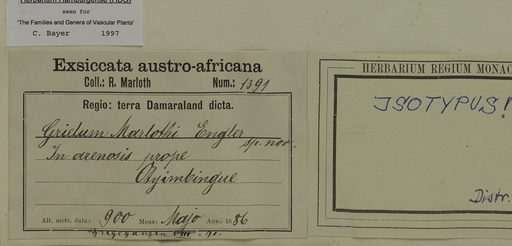 Herbarium Hamburgense (HBG)
seen for
'The Families and Genera of Vascular Plants'
C. Bayer 1997
Exsiccata austro-africana
Coll.: R. Marloth Num.: 1391
Regio: terra Damaraland dicta.
Marlothi Engler sp. nov.
In arenosis prope
Otyimbingue
Alt. metr. data: 900 Mens: Majo Ann: 1886
HERBARIUM REGIUM MONAC
ISOTYPUS!
Distr.